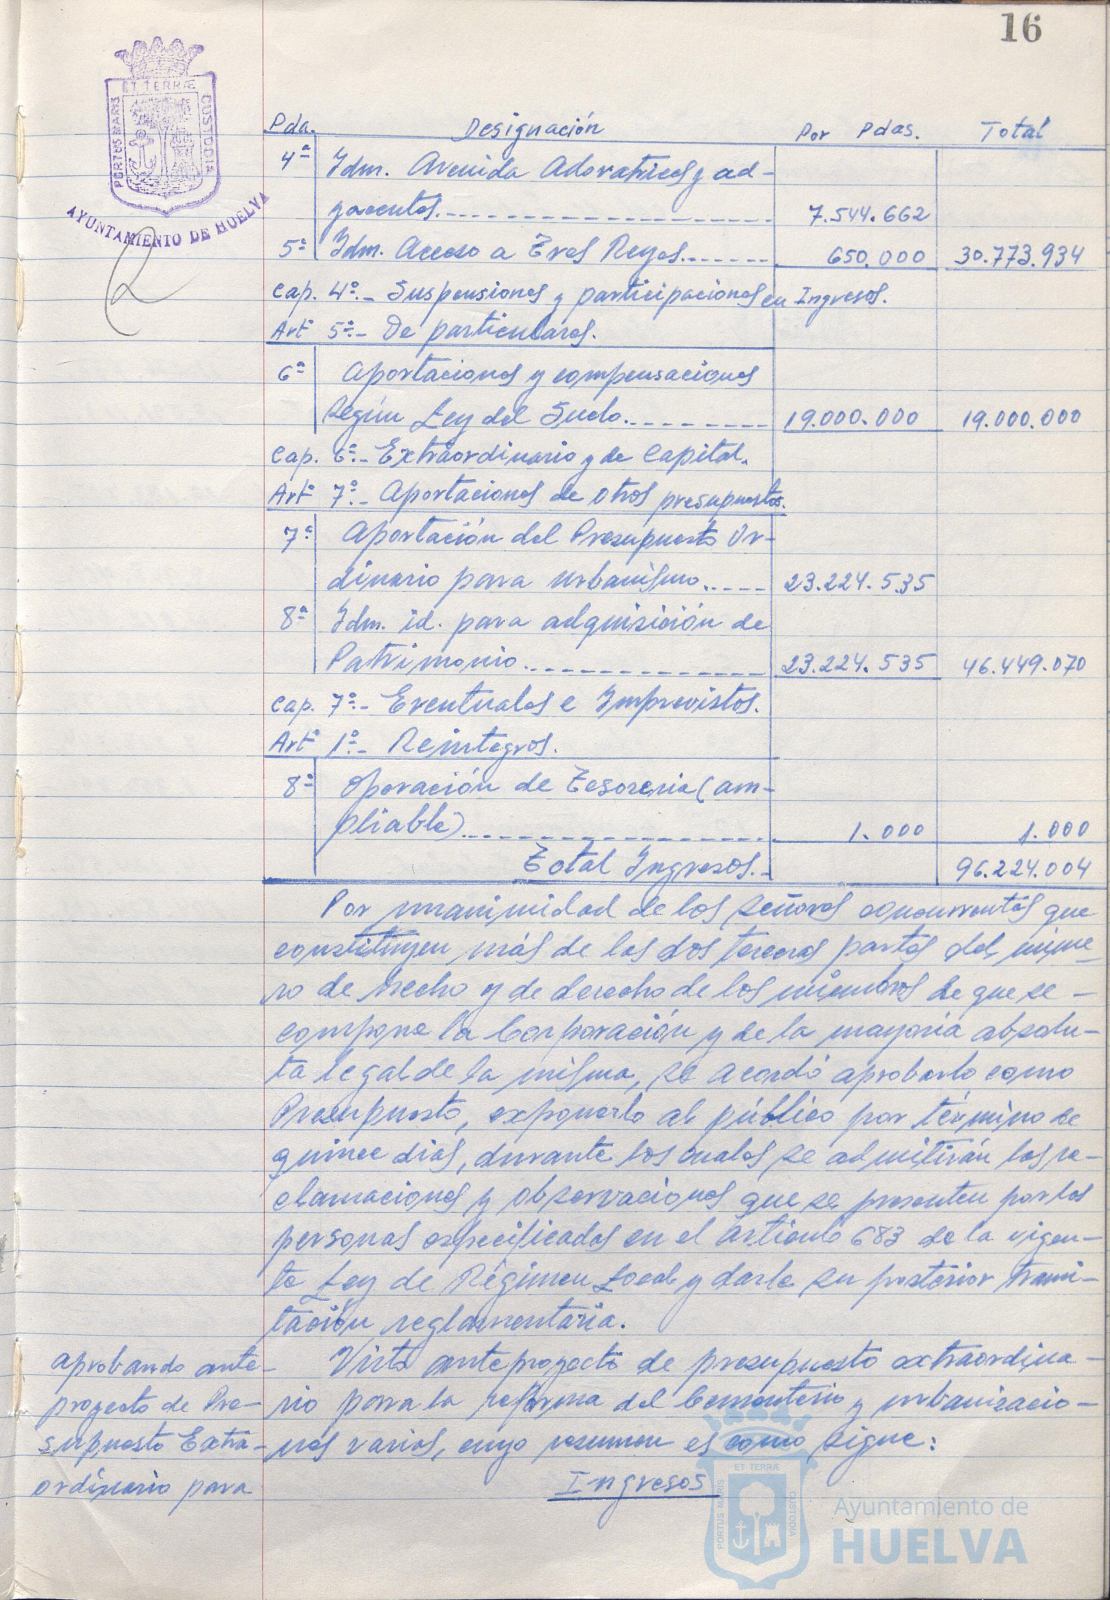 16
ET TERRÆ
PORTUS MARIS
CUSTODIA
AYUNTAMIENTO DE HUELVA
Pda. Designación Por Pdas. Total
4ª Idm. Avenida Adoratrices y ad-
yacentes. 7.544.662
5ª Idm. Acceso a Tres Reyes. 650.000 30.773.934
Cap. 4º.- Suspensiones y participaciones en Ingresos.
Artº 5º.- De particulares.
6ª Aportaciones y compensaciones
según Ley del Suelo. 19.000.000 19.000.000
Cap. 6º.- Extraordinario y de Capital.
Artº 7º.- Aportaciones de otros presupuestos.
7ª Aportación del Presupuesto Or-
dinario para urbanismo. 23.224.535
8ª Idm. id. para adquisición de
Patrimonio. 23.224.535 46.449.070
Cap. 7º.- Eventuales e Imprevistos.
Artº 1º.- Reintegros.
8ª Operación de Tesoreria (am-
pliable). 1.000 1.000
Total Ingresos.- 96.224.004
Por unanimidad de los señores concurrentes que
constituyen más de las dos terceras partes del núme-
ro de hecho y de derecho de los miembros de que se-
compone la Corporación y de la mayoria absolu-
ta legal de la misma, se acordó aprobarlo como
Presupuesto, exponerlo al público por término de
quince dias, durante los cuales se admitirán las re-
clamaciones y observaciones que se presenten por las
personas especificadas en el artículo 683 de la vigen-
te Ley de Régimen Local y darle su posterior trami-
tación reglamentaria.
aprobando ante-
proyecto de Pre-
supuesto Extra-
ordinario para
Visto anteproyecto de presupuesto extraordina-
rio para la reforma del Cementerio y urbanizacio-
nes varias, cuyo resumen es como sigue:
Ingresos
ET TERRÆ
PORTUS MARIS
CUSTODIA
Ayuntamiento de
HUELVA